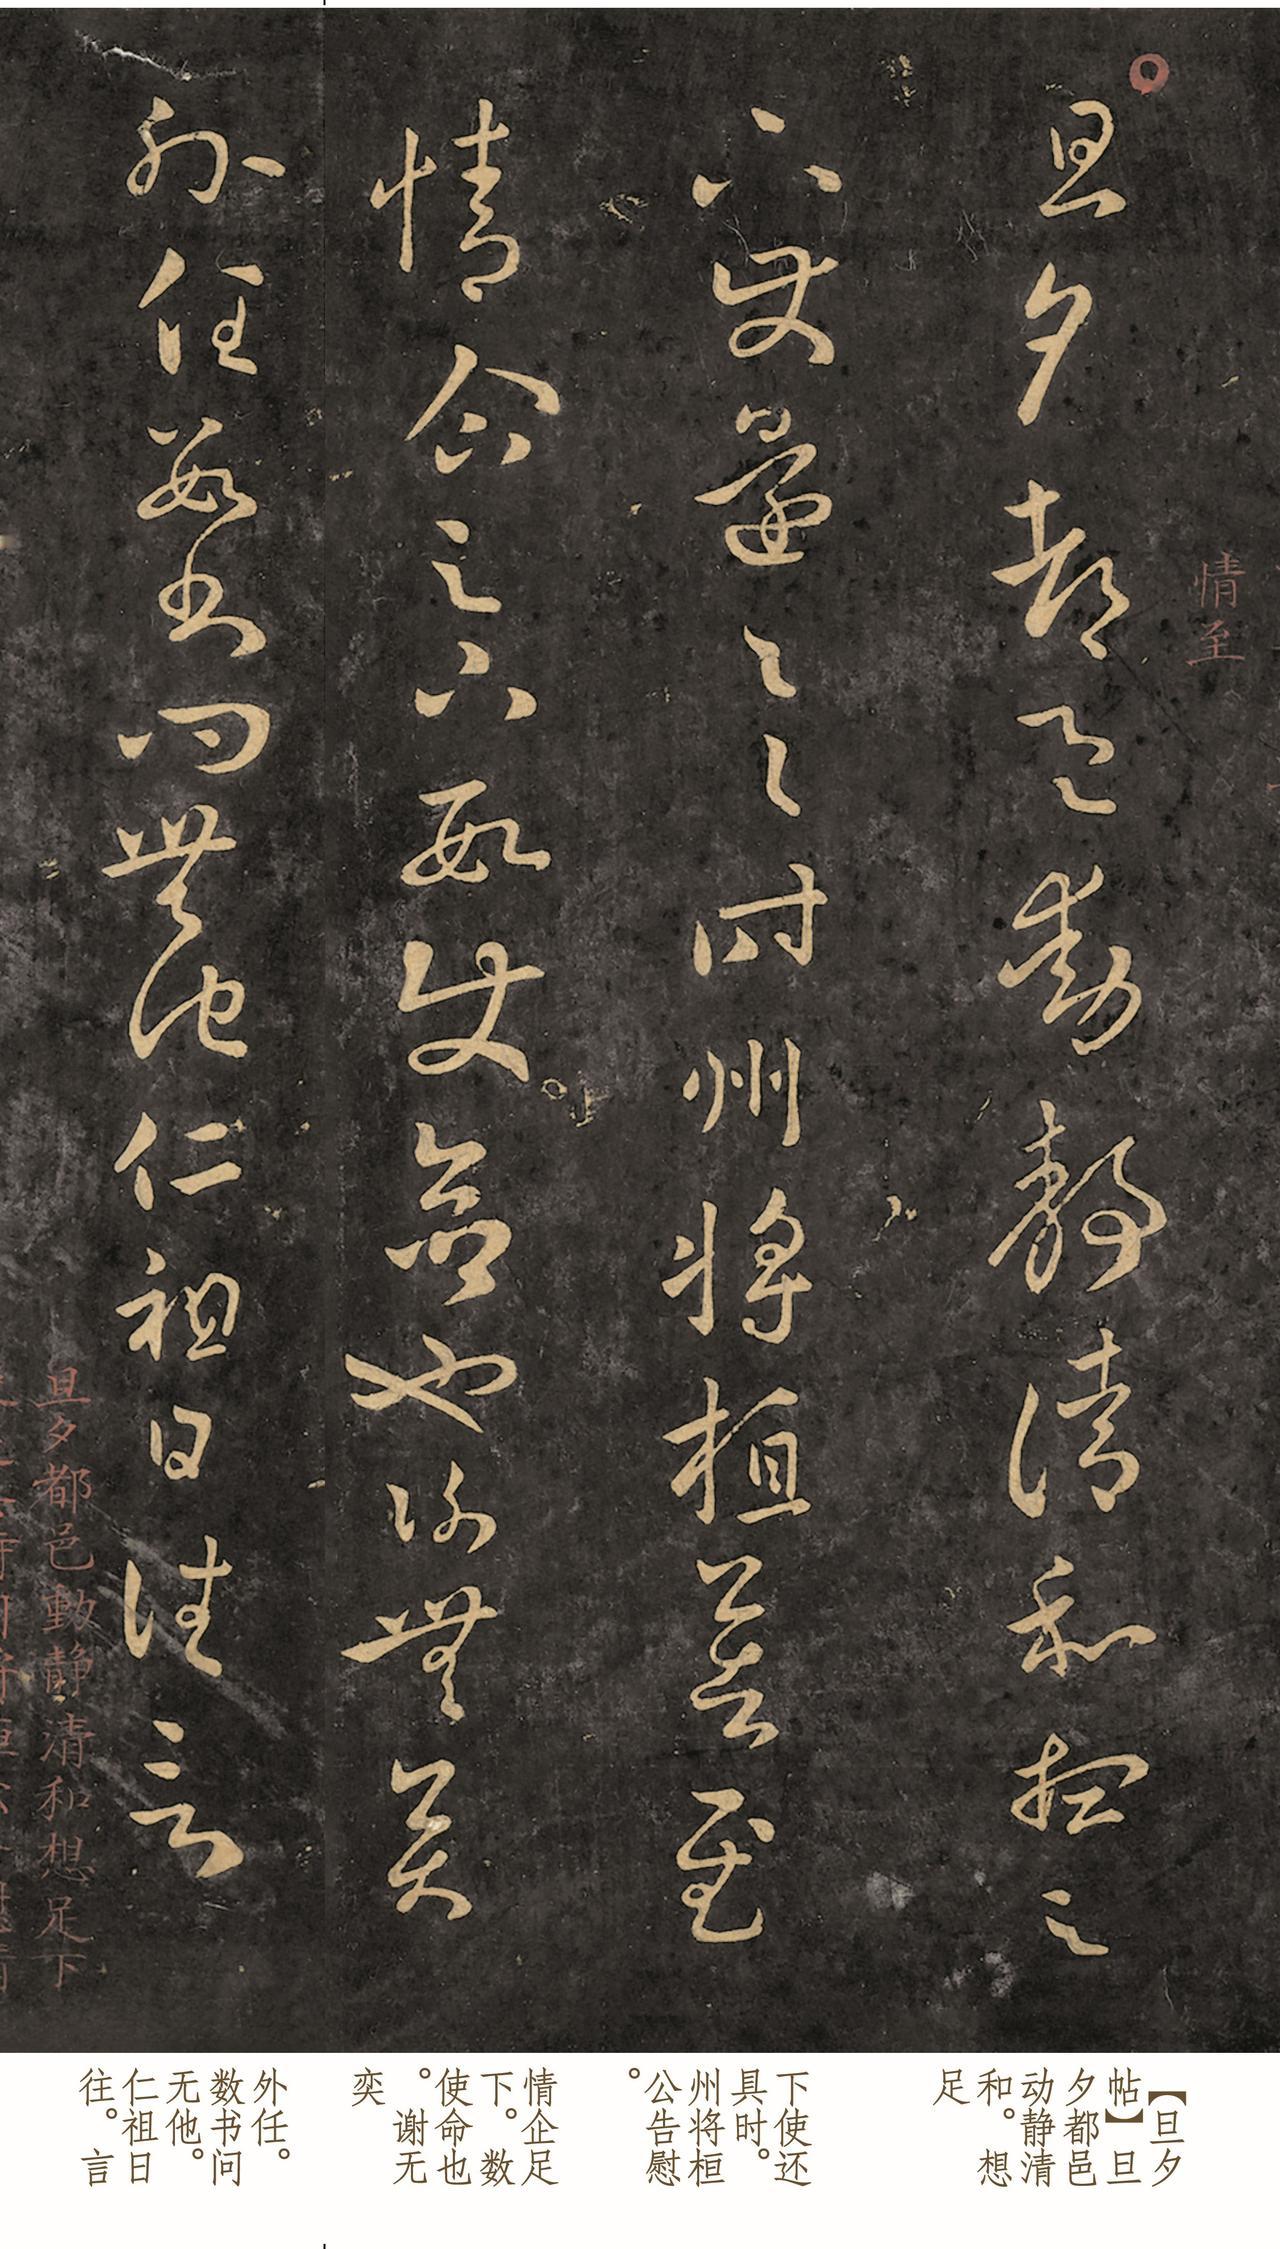 情至
旦夕都邑動靜清和想足
下使還一一時州將桓公告慰
情企足下數使命也謝無奕
外任數書問無他仁祖日往言
旦夕都邑動靜清和想足下
【旦夕
帖】旦
夕都邑
动静清
和。想
足
下使还
具时。
州将桓
公告慰
。
情企足
下。数
使命也
。谢无
奕
外任。
数书问
无他。
仁祖日
往。言